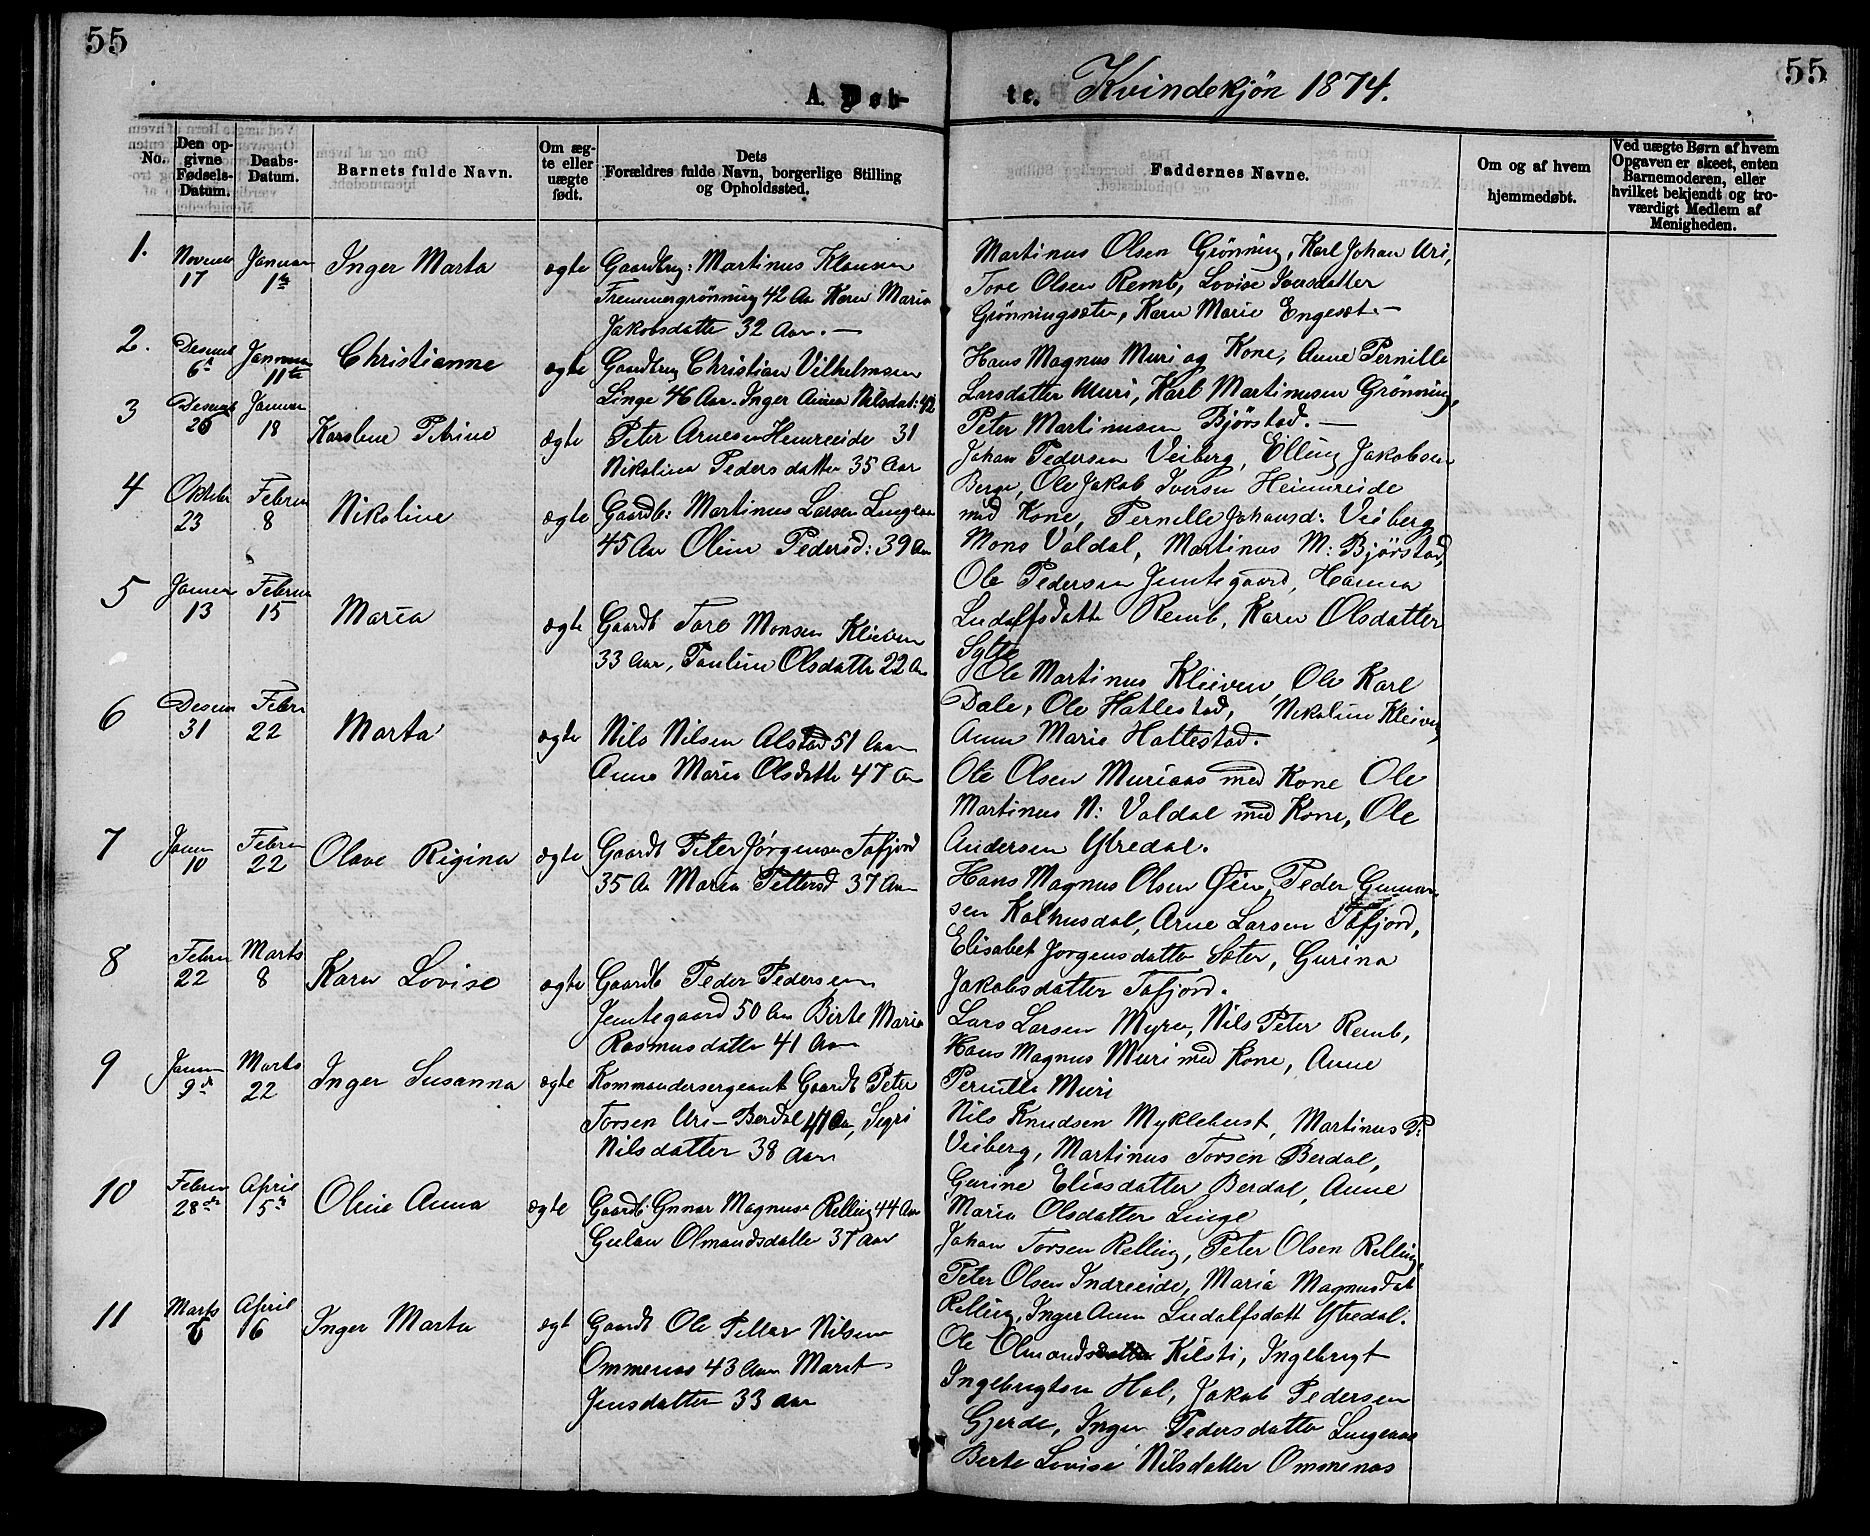 55
55
A. Døb-
te.
Kvindekjøn 1874.
No.
Den op-
givne
Fødsels-
Datum.
Daabs-
Datum.
Barnets fulde Navn.
Om æg-
te eller
uægte
født.
Dets
Forældres fulde Navn, borgerlige Stilling
og Opholdssted.
Faddernes Navne.
Om og af hvem
hjemmedøbt.
Ved uægte Børn af hvem
Opgaven er skeet, enten
Barnemoderen, eller
hvilket bekjendt og tro-
værdigt Medlem af
Menigheden.
1.
Novemb
17
Januar
1te
Inger Marta
ægte
Gaardbrug: Martinus Klausen
Fremmergrønning 42 Aar Karen Maria
Jakobsdatte 32 Aar. —
Martinus Olsen Grønning, Karl Johan Uri,
Tore Olsen Remb, Lovise Iversdatter
Grønningsæter, Karen Marie Engeset. —
2.
Desemb
6te
Januar
11te
Christianne
ægte
Gaardbrug Christian Vilhelmsen
Linge 46 Aar. Inger Anna Nilsdat: 42
Hans Magnus Muri og Kone, Anne Pernille
Larsdatter Muri, Karl Martinusen Grønning,
Peter Martinusen Bjørstad. —
3
Desemb
26
Januar
18
Karoline Petrine
ægte
Peter Arnesen Heimreeide 31
Nikolina Pedersdatter 35 Aar
Johan Pedersen Veiberg, Elling Jakobsen
Berge, Ole Jakob Iversen Heimreide
med Kone, Pernille Johansd: Veiberg
4
Oktober
23
Februa
8
Nikoline
ægte
Gaardb: Martinus Larsen Lingeaas
45 Aar Oline Pedersd: 39 Aar
Mons Valdal, Martinus M: Bjørstad,
Ole Pedersen Jemtegaard, Hanna
Ludolfsdatte Remb, Karen Olsdatter
Sylte
5
Januar
13
Februa
15
Maria
ægte
Gaardb Tore Monsen Kleiven
33 Aar, Pauline Olsdatte 22 Aar
Ole Martinus Kleiven, Ole Karl
Dale, Ole Hatlestad, Nikoline Kleiven,
Anne Marie Hattestad.
6
Desem
31
Febru
22
Marta
ægte
Nils Nilsen Alstad 51 Aar
Anne Maria Olsdatte 47 Aar
Ole Olsen Muriaas med Kone Ole
Martinus N: Valdal med Kone, Ole
Andersen Ytredal.
7
Janua
10
Februa
22
Olave Rigina
ægte
Gaardb Peter Jørgensen Tafjord
35 Aar Maria Pettersd 37 Aar
Hans Magnus Olsen Øien, Peder Gunnar-
sen Kalhusdal, Arne Larsen Tafjord,
Elisabet Jørgensdatter Sæter, Gurina
Jakobsdatter Tafjord.
8
Februa
22
Marts
8
Karen Lovise
ægte
Gaardb Peder Pedersen
Jemtegaard 50 Aar Birte Maria
Rasmusdatte 41 Aar
Lars Larsen Myren, Nils Peter Remb,
Hans Magnus Muri med Kone, Anne
Pernilla Muri
9
Januar
9de
Marts
22
Inger Susanna
ægte
Kommandersergeant Gaardb Peter
Torsen Uri-Berdal 41 Aar, Sigri
Nilsdatter 38 Aar
Nils Knudsen Myklebust, Martinus P:
Veiberg, Martinus Torsen Berdal,
Gurine Eliasdatter Berdal, Anne
Maria Olsdatter Linge
10
Februa
28de
April
5te
Oline Anna
ægte
Gaardb: Gunnar Magnus Relling 44 Aar
Olmandsdatter 37 Aar
Johan Torsen Relling, Peter Olsen Relling,
Peter Olsen Indreeide, Maria Magnusdat
Relling, Inger Anna Ludolfsdatt Ytredal.
11
Marts
6
April
16
Inger Marta
ægt
Gaardb Ole Petter Nilsen
Ommenas 43 Aar Marit
Jensdatter 33 Aar
Ole Olmands Kilsti, Ingebrigt
Ingebrigtsen Hol, Jakob Pedersen
Gjerde, Inger Pedersdatter Lingeaas
Berte Lovise Nilsdatter Ommenas